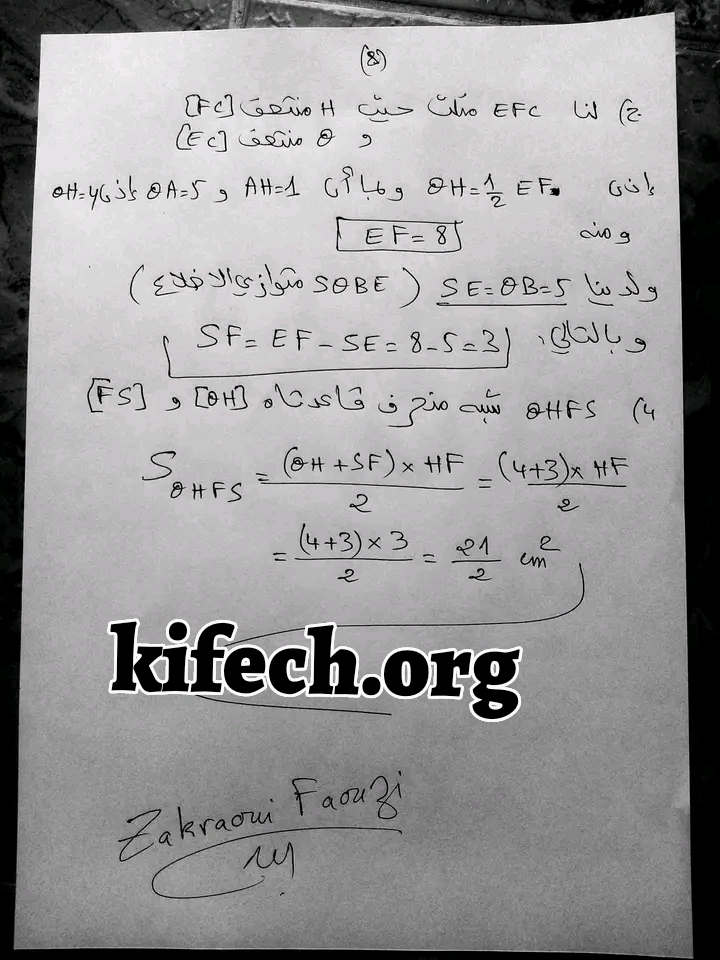 (8)
ج) لنا EFC مثلث حيث H منتصف [FC]
و O منتصف [EC]
إذن OH = 1/2 EF وبما أن AH=1 و OA=5 إذن OH=4
ومنه EF = 8
ولدينا SE=OB=5 (SOBE متوازي الاضلاع)
وبالتالي: SF = EF - SE = 8 - 5 = 3
4) OHFS شبه منحرف قاعدتاه [OH] و [FS]
S OHFS = (OH + SF) × HF / 2 = (4+3) × HF / 2
= (4+3) × 3 / 2 = 21/2 cm²
kifech.org
Zakraoui Faouzi